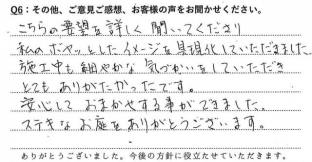 Q6：その他、ご意見ご感想、お客様の声をお聞かせください。
こちらの要望を詳しく聞いてくださり
私のボヤッとしたイメージを具現化していただきました。
施工中も細やかな気づかいをしていただき
とてもありがたかったです。
安心しておまかせする事ができました。
ステキなお庭をありがとうございます。
ありがとうございました。今後の方針に役立たせていただきます。